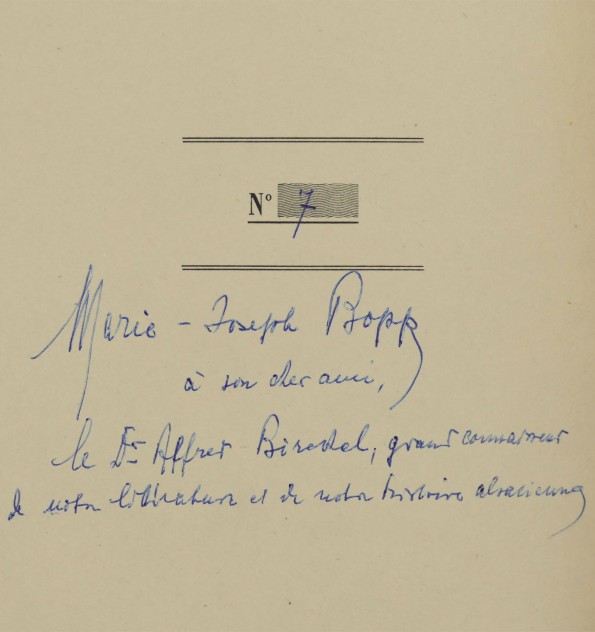 Nº 7
Marie-Joseph Bopp
à son cher ami,
le Dr Alfred, grand connaisseur
de notre littérature et de notre histoire alsacienne